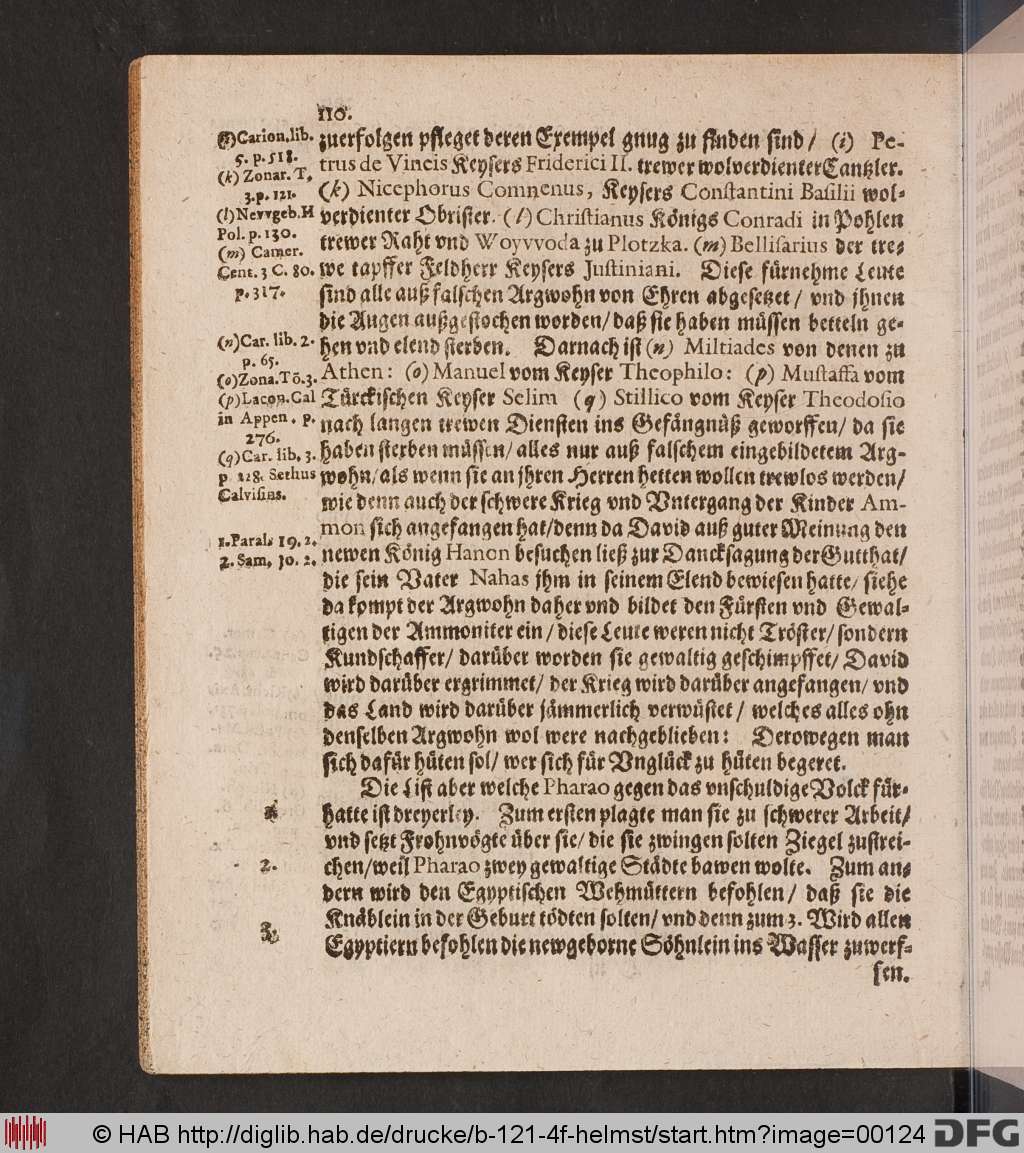 110.
zuerfolgen pfleget deren Exempel gnug zu finden sind/ (i) Pe-
trus de Vineis Keysers Friderici II. trewer wolverdienter Cantzler.
(k) Nicephorus Comnenus, Keysers Constantini Basilii wol-
verdienter Obrister. (l) Christianus Königs Conradi in Pohlen
trewer Raht vnd Woyvvoda zu Plotzka. (m) Bellisarius der tre-
we tapffer Feldherr Keysers Justiniani. Diese fürnehme Leute
sind alle auß falschen Argwohn von Ehren abgesetzet/ vnd jhnen
die Augen außgestochen worden/ daß sie haben müssen betteln ge-
hen vnd elend sterben. Darnach ist (n) Miltiades von denen zu
Athen: (o) Manuel vom Keyser Theophilo: (p) Mustaffa vom
Türckischen Keyser Selim (q) Stillico vom Keyser Theodosio
nach langen trewen Diensten ins Gefängnüß geworffen/ da sie
haben sterben müssen/ alles nur auß falschem eingebildetem Arg-
wohn/ als wenn sie an jhren Herren hetten wollen trewlos werden/
wie denn auch der schwere Krieg vnd Vntergang der Kinder Am-
mon sich angefangen hat/ denn da David auß guter Meinung den
newen König Hanon besuchen ließ zur Dancksagung der Gutthat/
die sein Vater Nahas jhm in seinem Elend bewiesen hatte/ siehe
da kompt der Argwohn daher vnd bildet den Fürsten vnd Gewal-
tigen der Ammoniter ein/ diese Leute weren nicht Tröster/ sondern
Kundschaffer/ darüber worden sie gewaltig geschimpffet/ David
wird darüber ergrimmet/ der Krieg wird darüber angefangen/ vnd
das Land wird darüber jämmerlich verwüstet/ welches alles ohn
denselben Argwohn wol were nachgeblieben: Derowegen man
sich dafür hüten sol/ wer sich für Vnglück zu hüten begeret.
Die List aber welche Pharao gegen das vnschuldige Volck für-
hatte ist dreyerley. Zum ersten plagte man sie zu schwerer Arbeit/
vnd setzt Frohnvögte über sie/ die sie zwingen solten Ziegel zustrei-
chen/ weil Pharao zwey gewaltige Städte bawen wolte. Zum an-
dern wird den Egyptischen Wehmüttern befohlen/ daß sie die
Knäblein in der Geburt tödten solten/ vnd denn zum 3. Wird allen
Egyptiern befohlen die newgeborne Söhnlein ins Wasser zuwerf-
fen.
Carion. lib.
5. p. 518.
(k) Zonar. T.
3. p. 121.
(l) Nevvgeb. H
Pol. p. 130.
(m) Camer.
Cent. 3 C. 80.
p. 317.
(n) Car. lib. 2.
p. 65.
(o) Zona. Tō. 3.
(p) Lacon. Cal
in Appen. p.
276.
(q) Car. lib. 3.
p 128. Sethus
Calvisius.
1. Paral. 19. 2.
2. Sam. 10. 2.
2.
3.
© HAB http://diglib.hab.de/drucke/b-121-4f-helmst/start.htm?image=00124
DFG